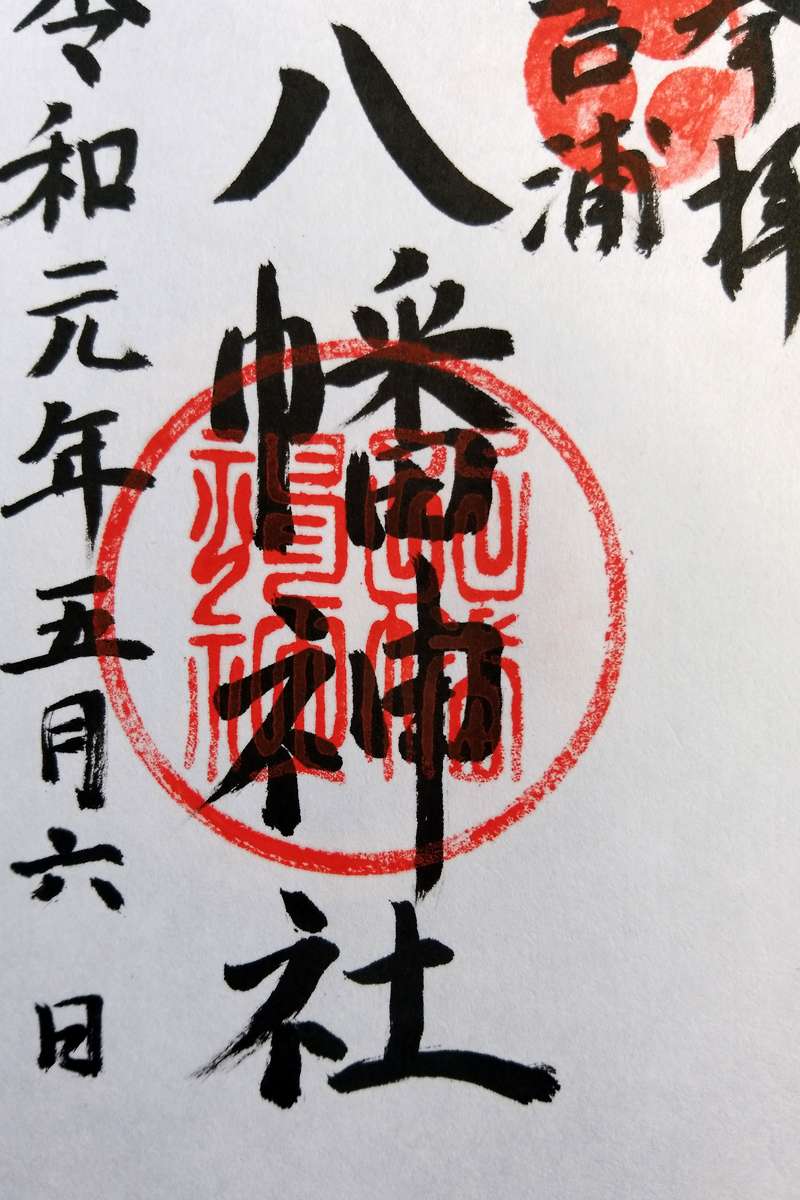 奉拝
吉浦
八幡神社
令和元年五月六日